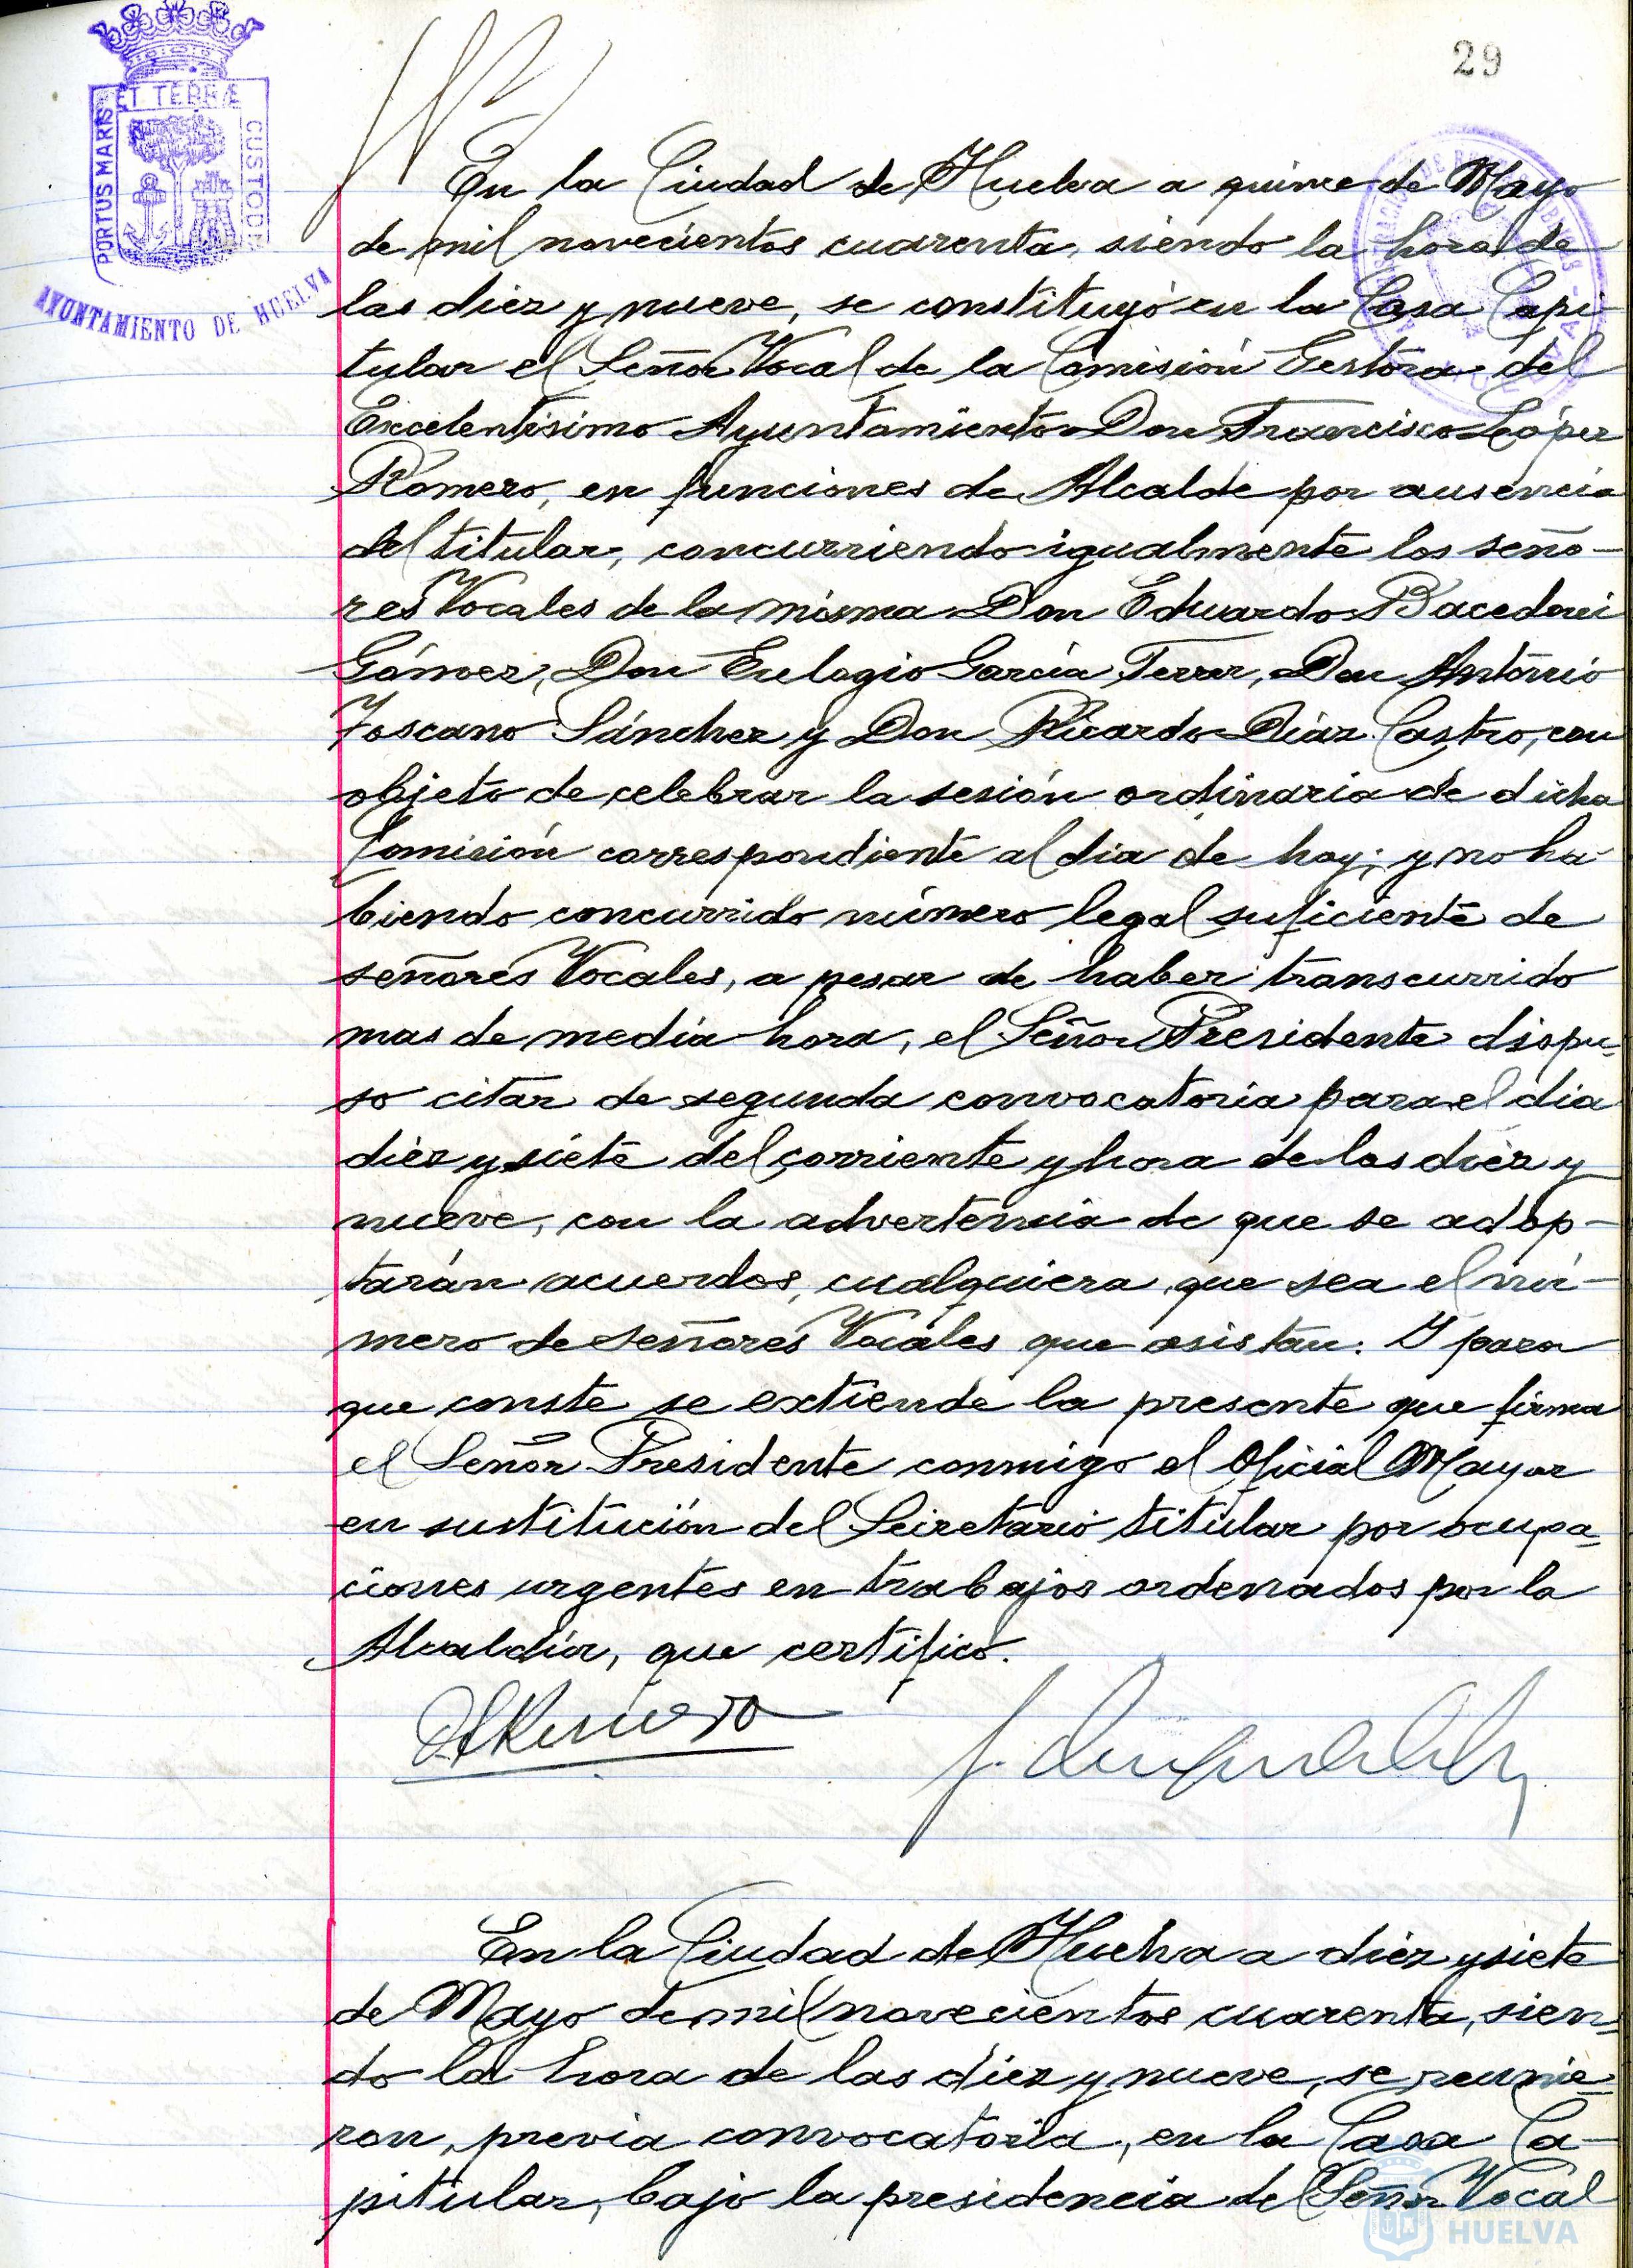 29
ET TERRÆ
PORTUS MARIS
CUSTODI
AYUNTAMIENTO DE HUELVA
En la Ciudad de Huelva a quince de Mayo
de mil novecientos cuarenta, siendo la hora de
las diez y nueve, se constituyó en la Casa Capi-
tular el Señor Vocal de la Comisión Gestora del
Excelentísimo Ayuntamiento Don Francisco López
Romero, en funciones de Alcalde por ausencia
del titular, concurriendo igualmente los seño-
res Vocales de la misma Don Eduardo
Gómez, Don Eulogio García Terrer, Don Antonio
Toscano Sánchez y Don Ricardo Díaz Castro, con
objeto de celebrar la sesión ordinaria de dicha
Comisión correspondiente al dia de hoy; y no ha-
biendo concurrido número legal suficiente de
señores Vocales, a pesar de haber transcurrido
mas de media hora, el Señor Presidente dispu-
so citar de segunda convocatoria para el dia
diez y siete del corriente y hora de las diez y
nueve, con la advertencia de que se adop-
tarán acuerdos, cualquiera que sea el nú-
mero de señores Vocales que asistan. Y para
que conste se extiende la presente que firma
el Señor Presidente conmigo el Oficial Mayor
en sustitución del Secretario titular por ocupa-
ciones urgentes en trabajos ordenados por la
Alcaldía, que certifico.
En la Ciudad de Huelva a diez y siete
de Mayo de mil novecientos cuarenta, sien-
do la hora de las diez y nueve, se reunie-
ron, previa convocatoria, en la Casa Ca-
pitular, bajo la presidencia del Señor Vocal
HUELVA